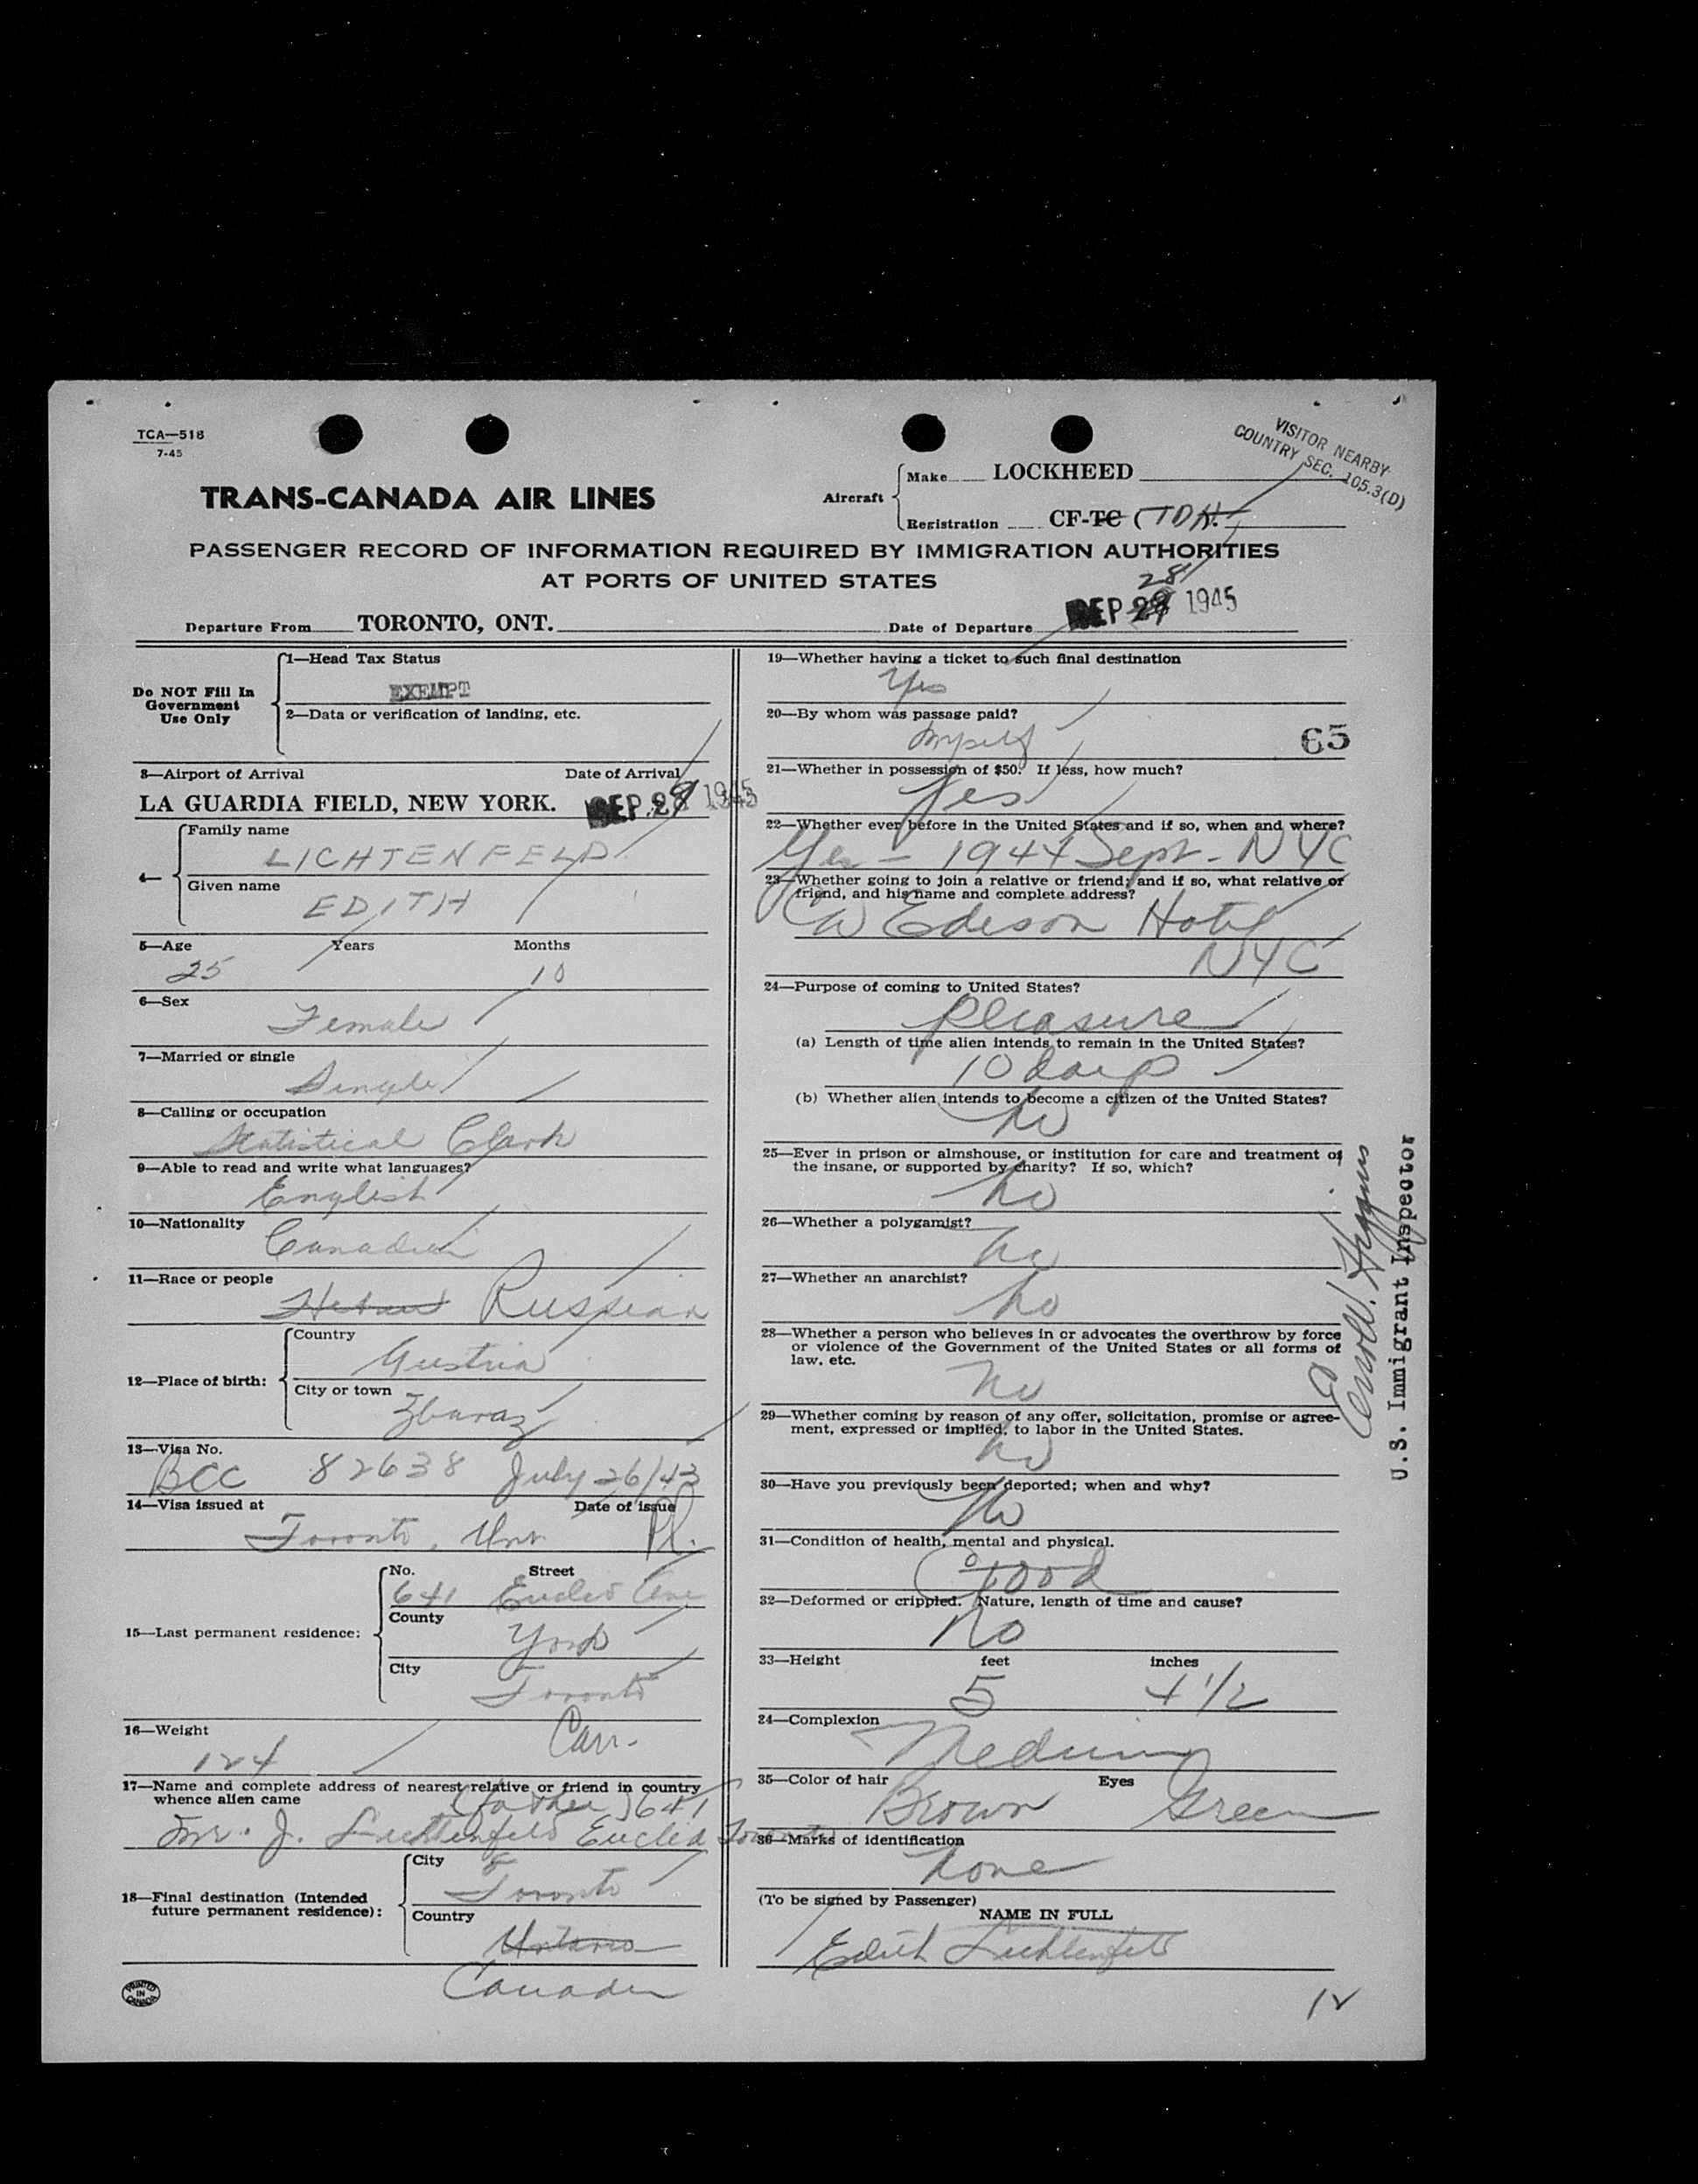 TCA—518
7-45
VISITOR NEARBY
COUNTRY SEC. 105.3(D)
TRANS-CANADA AIR LINES
Aircraft
Make LOCKHEED
Registration CF-TC
PASSENGER RECORD OF INFORMATION REQUIRED BY IMMIGRATION AUTHORITIES
AT PORTS OF UNITED STATES
28
Departure From TORONTO, ONT. Date of Departure SEP 1945
Do NOT Fill In
Government
Use Only
1—Head Tax Status
EXEMPT
2—Data or verification of landing, etc.
3—Airport of Arrival Date of Arrival
LA GUARDIA FIELD, NEW YORK. SEP 1945
4—
Family name
LICHTENFELD
Given name
EDITH
5—Age Years Months
25 10
6—Sex
Female
7—Married or single
Single
8—Calling or occupation
Statistical Clerk
9—Able to read and write what languages?
English
10—Nationality
Canadian
11—Race or people
Hebrew Russian
12—Place of birth:
Country
Austria
City or town
Zbaraz
13—Visa No.
BCC 82638 July 26/43
14—Visa issued at Date of issue
Toronto, Ont
15—Last permanent residence:
No. Street
641 Euclid Ave
County
York
City
Toronto
Can.
16—Weight
124
17—Name and complete address of nearest relative or friend in country
whence alien came
(father) 641
Mr. J. Lichtenfeld Euclid Toronto
18—Final destination (Intended
future permanent residence):
City
Toronto
Country
Ontario
Canada
PRINTED
IN
CANADA
19—Whether having a ticket to such final destination
Yes
20—By whom was passage paid?
Myself
65
21—Whether in possession of $50. If less, how much?
Yes
22—Whether ever before in the United States and if so, when and where?
Yes - 1944 Sept - NYC
23—Whether going to join a relative or friend; and if so, what relative or
friend, and his name and complete address?
Edison Hotel
NYC
24—Purpose of coming to United States?
Pleasure
(a) Length of time alien intends to remain in the United States?
10 days
(b) Whether alien intends to become a citizen of the United States?
No
25—Ever in prison or almshouse, or institution for care and treatment of
the insane, or supported by charity? If so, which?
No
26—Whether a polygamist?
No
27—Whether an anarchist?
No
28—Whether a person who believes in or advocates the overthrow by force
or violence of the Government of the United States or all forms of
law, etc.
No
29—Whether coming by reason of any offer, solicitation, promise or agree-
ment, expressed or implied, to labor in the United States.
No
30—Have you previously been deported; when and why?
No
31—Condition of health, mental and physical.
Good
32—Deformed or crippled. Nature, length of time and cause?
No
33—Height feet inches
5 4 1/2
24—Complexion
Medium
35—Color of hair Eyes
Brown Green
36—Marks of identification
None
(To be signed by Passenger)
NAME IN FULL
Edith Lichtenfeld
12
U.S. Immigrant Inspector